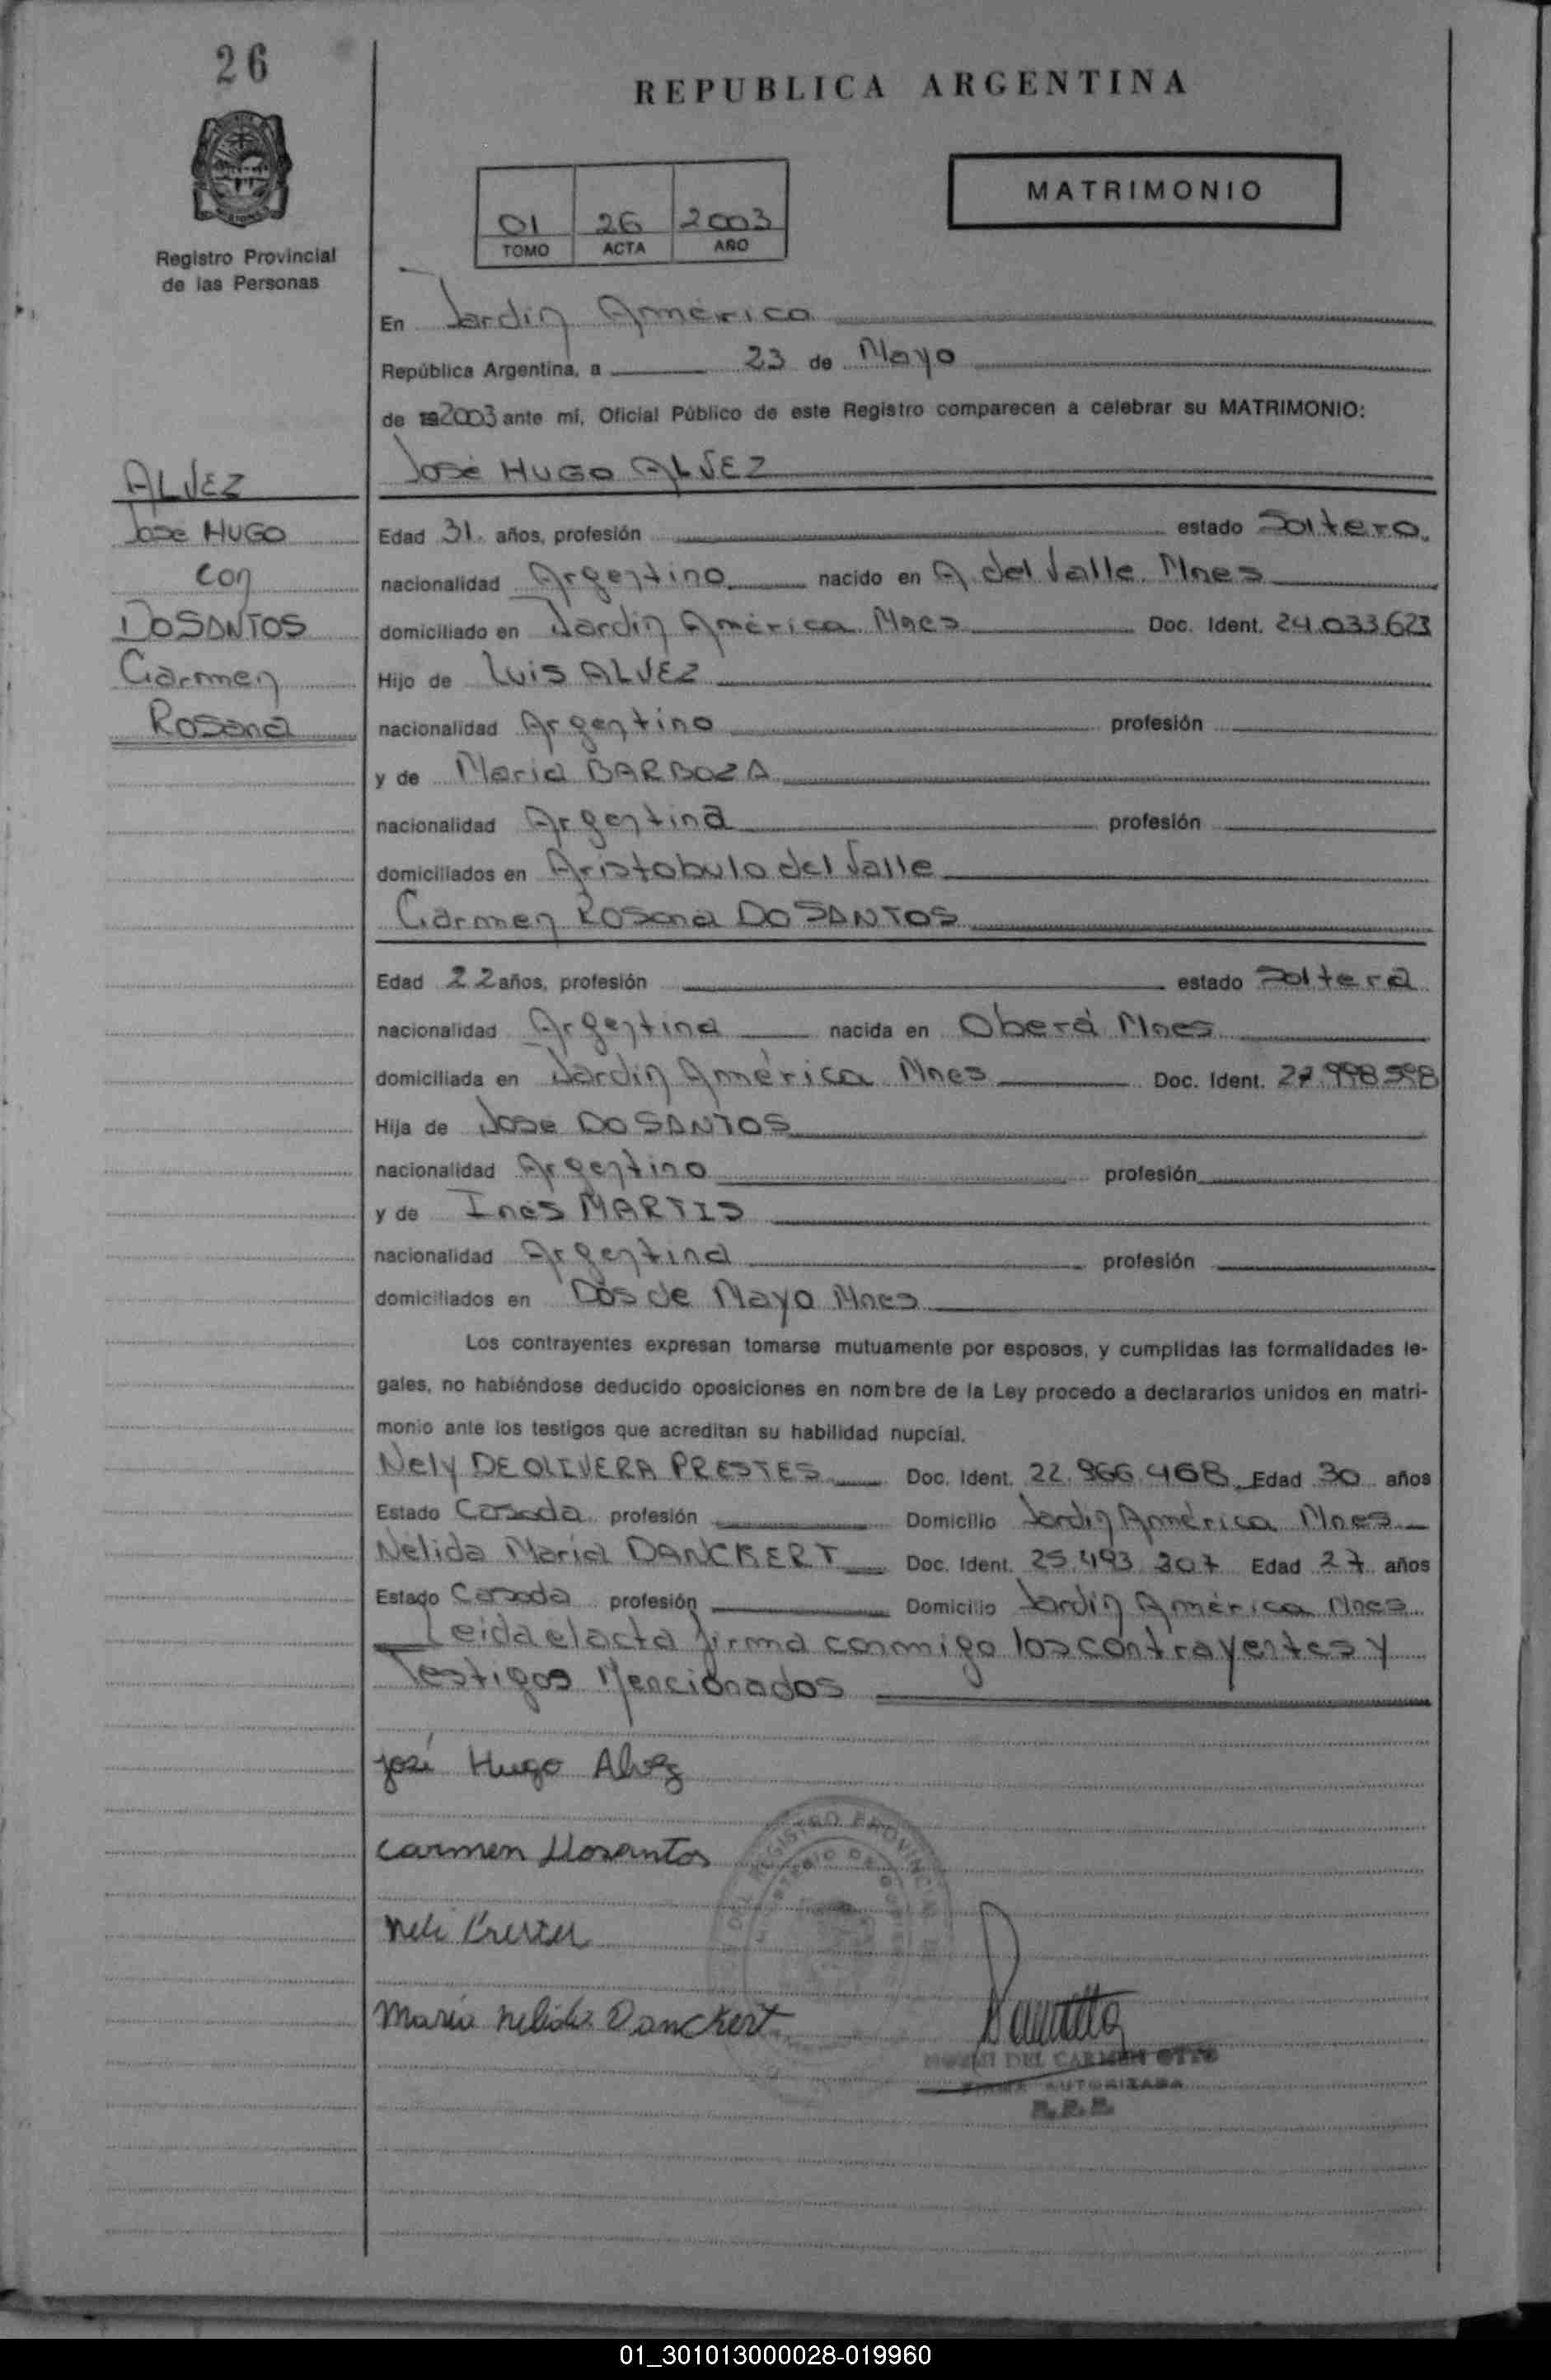 26
REPUBLICA ARGENTINA
MATRIMONIO
01 26 2003
TOMO ACTA AÑO
Registro Provincial
de las Personas
En Jardín América
República Argentina, a 23 de Mayo
de 192003 ante mí, Oficial Público de este Registro comparecen a celebrar su MATRIMONIO:
José HUGO ALVEZ
ALVEZ
Jose HUGO
con
DOSANTOS
Carmen
Rosana
Edad 31. años, profesión estado Soltero.
nacionalidad Argentino nacido en A. del Valle. Mnes
domiciliado en Jardín América Mnes Doc. Ident. 24.033.623
Hijo de Luis ALVEZ
nacionalidad Argentino profesión
y de Maria BARBOZA
nacionalidad Argentina profesión
domiciliados en Aristobulo del Valle
Carmen Rosana DOSANTOS
Edad 22 años, profesión estado Soltera
nacionalidad Argentina nacida en Oberá Mnes
domiciliada en Jardín América Mnes Doc. Ident. 27.998.598
Hija de Jose DOSANTOS
nacionalidad Argentino profesión
y de Inés MARTIS
nacionalidad Argentina profesión
domiciliados en Dos de Mayo Mnes
Los contrayentes expresan tomarse mutuamente por esposos, y cumplidas las formalidades le-
gales, no habiéndose deducido oposiciones en nombre de la Ley procedo a declararlos unidos en matri-
monio ante los testigos que acreditan su habilidad nupcial.
Nely DE OLIVERA PRESTES Doc. Ident. 22.966.468 Edad 30 años
Estado Casada profesión Domicilio Jardín América Mnes
Nélida María DANCKERT Doc. Ident. 25.493.207 Edad 27 años
Estado Casada profesión Domicilio Jardín América Mnes
Leida el acta firma conmigo los contrayentes y
Testigos Mencionados
José Hugo Alvez
Carmen Dosantos
Neli Prestes
María Nelida Danckert
REGISTRO PROVINCIAL
DEL CARMEN OTTO
FIRMA AUTORIZADA
R.P.P.
01_301013000028-019960